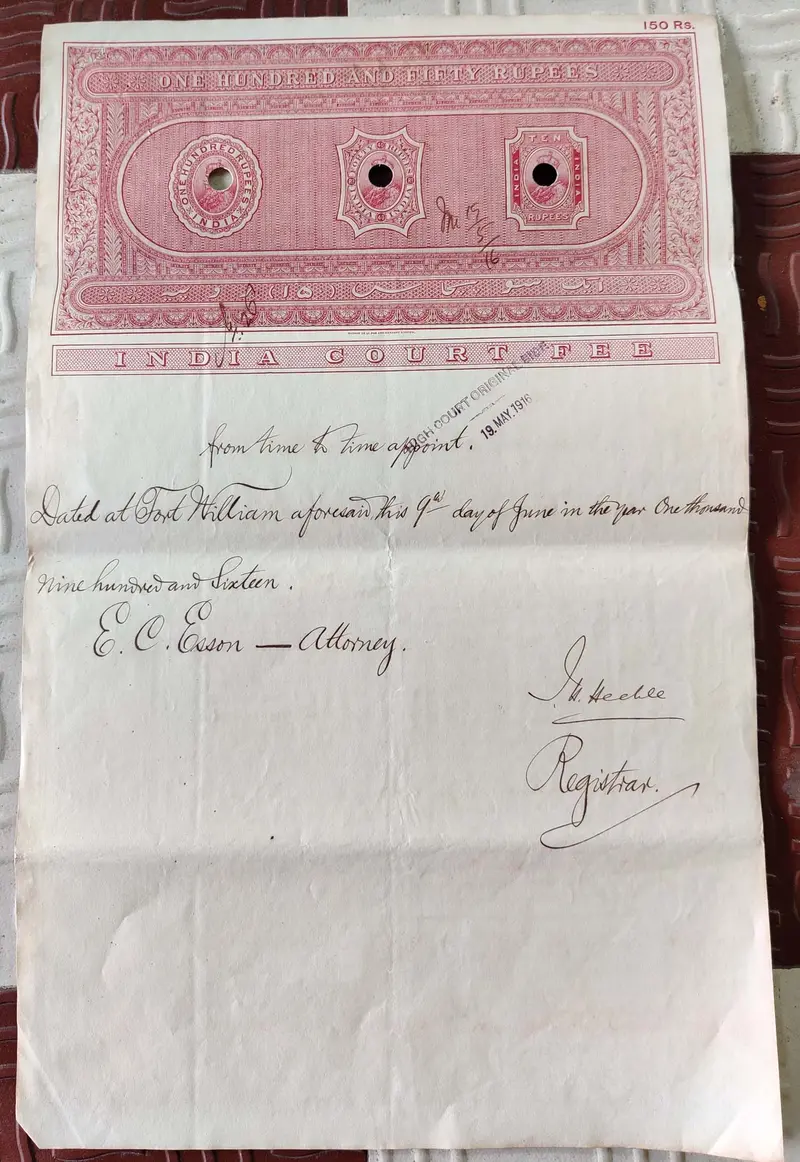 150 Rs.
ONE HUNDRED AND FIFTY RUPEES
ONE HUNDRED RUPEES
INDIA
FORTY RUPEES
INDIA
TEN
INDIA
INDIA
RUPEES
INDIA COURT FEE
HIGH COURT ORIGINAL SIDE
19. MAY. 1916
from time to time appoint.
Dated at Fort William aforesaid, this 9th day of June in the year One thousand
nine hundred and Sixteen.
E. C. Esson — Attorney.
Registrar.